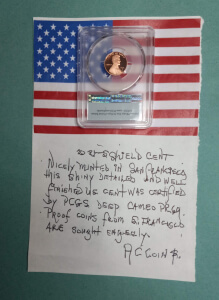 SHIELD CENT
NICELY MINTED IN SAN FRANCISCO
THIS SHINY DETAILED AND WELL
FINISHED US CENT WAS CERTIFIED
BY PCGS DEEP CAMEO PR69.
PROOF COINS FROM S. FRANCISCO
ARE SOUGHT EAGERLY.